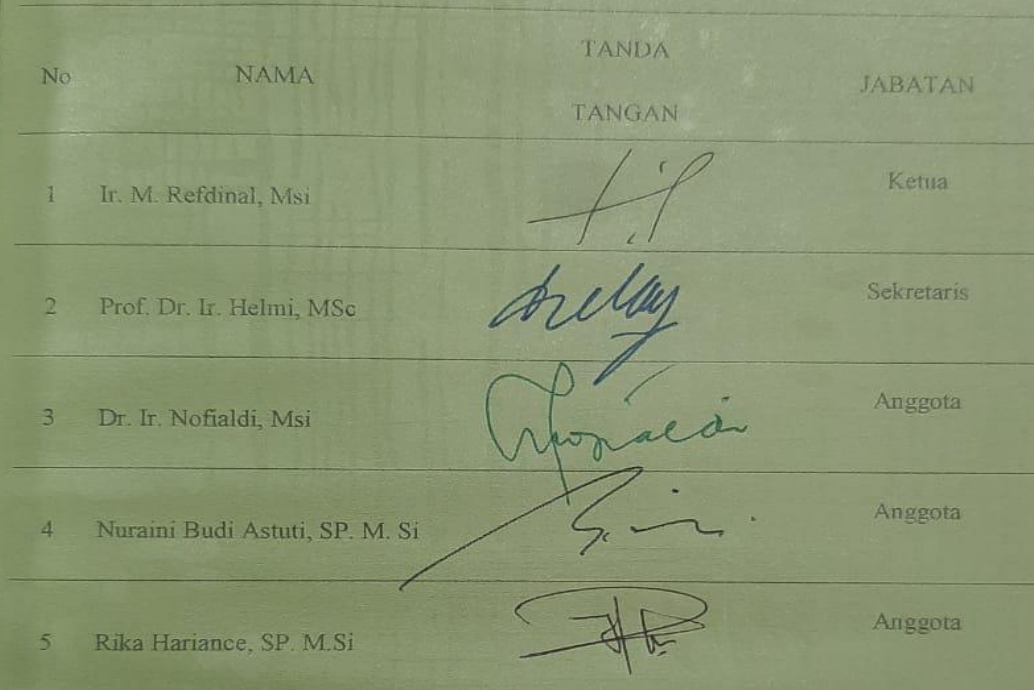 No NAMA TANDA TANGAN JABATAN
1 Ir. M. Refdinal, Msi Ketua
2 Prof. Dr. Ir. Helmi, MSc Sekretaris
3 Dr. Ir. Nofialdi, Msi Anggota
4 Nuraini Budi Astuti, SP. M. Si Anggota
5 Rika Hariance, SP. M.Si Anggota